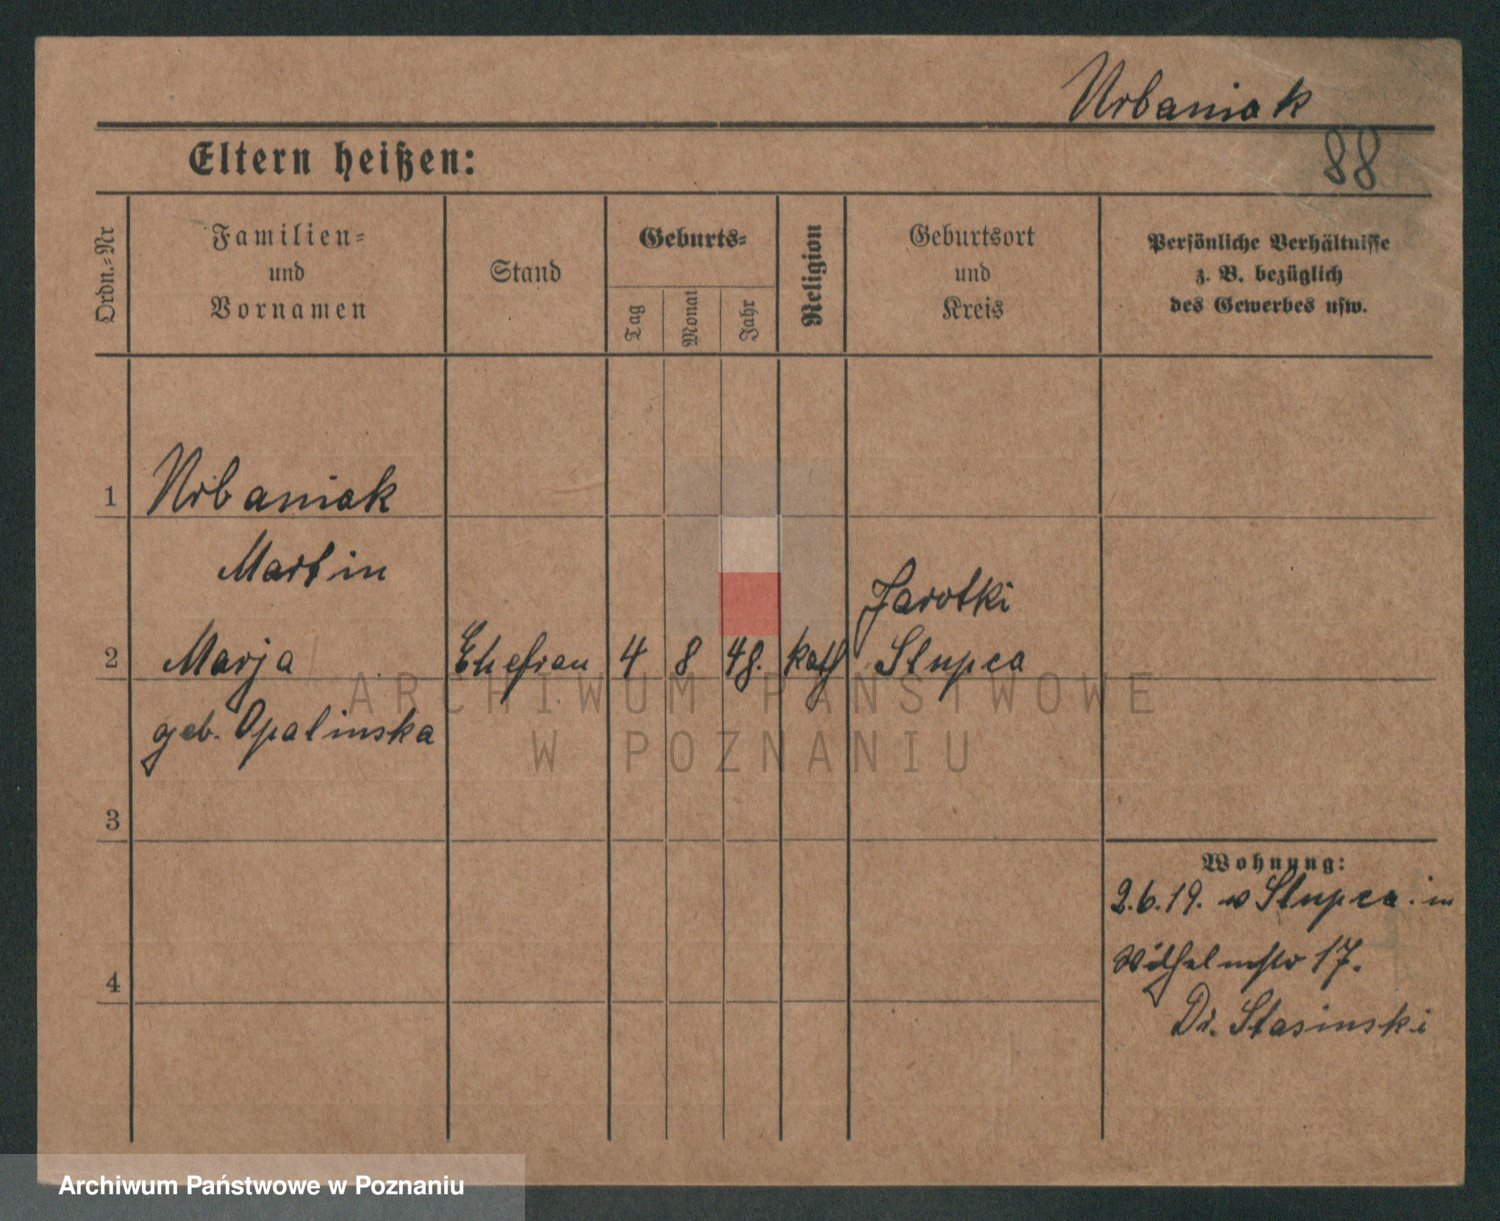 Urbaniak
88
Eltern heißen:
Ordn.-Nr
Familien-
und
Vornamen
Stand
Geburts-
Tag
Monat
Jahr
Religion
Geburtsort
und
Kreis
Persönliche Verhältnisse
z. B. bezüglich
des Gewerbes usw.
1 Urbaniak
Martin
Jarotki
2 Marja Ehefrau 4 8 48. kath Slupca
geb. Opalinska
3
Wohnung:
2.6.19. Slupca
17.
4
Dr. Stasinski
ARCHIWUM PAŃSTWOWE
W POZNANIU
Archiwum Państwowe w Poznaniu